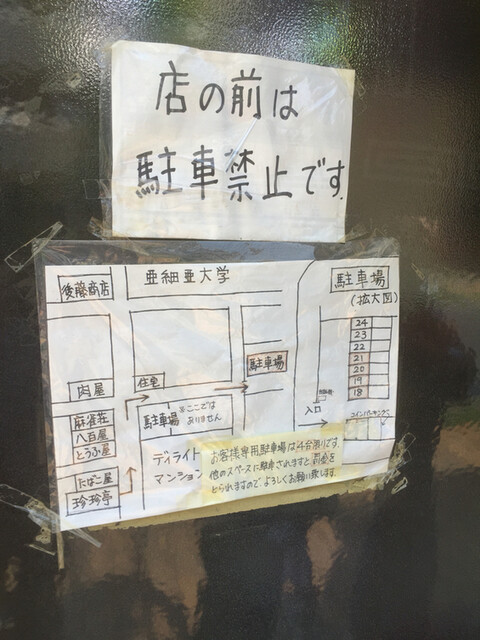 店の前は
駐車禁止です.
後藤商店
亜細亜大学
駐車場
(拡大図)
24
23
22
21
20
19
18
駐車場
肉屋
住宅
麻雀荘
八百屋
とうふ屋
駐車場
※ここでは
ありません
入口
コインパーキング
ディライト
マンション
お客様専用駐車場は4台限りです.
他のスペースに駐車されますと罰金を
とられますのでよろしくお願い致します.
たばこ屋
珍珍亭